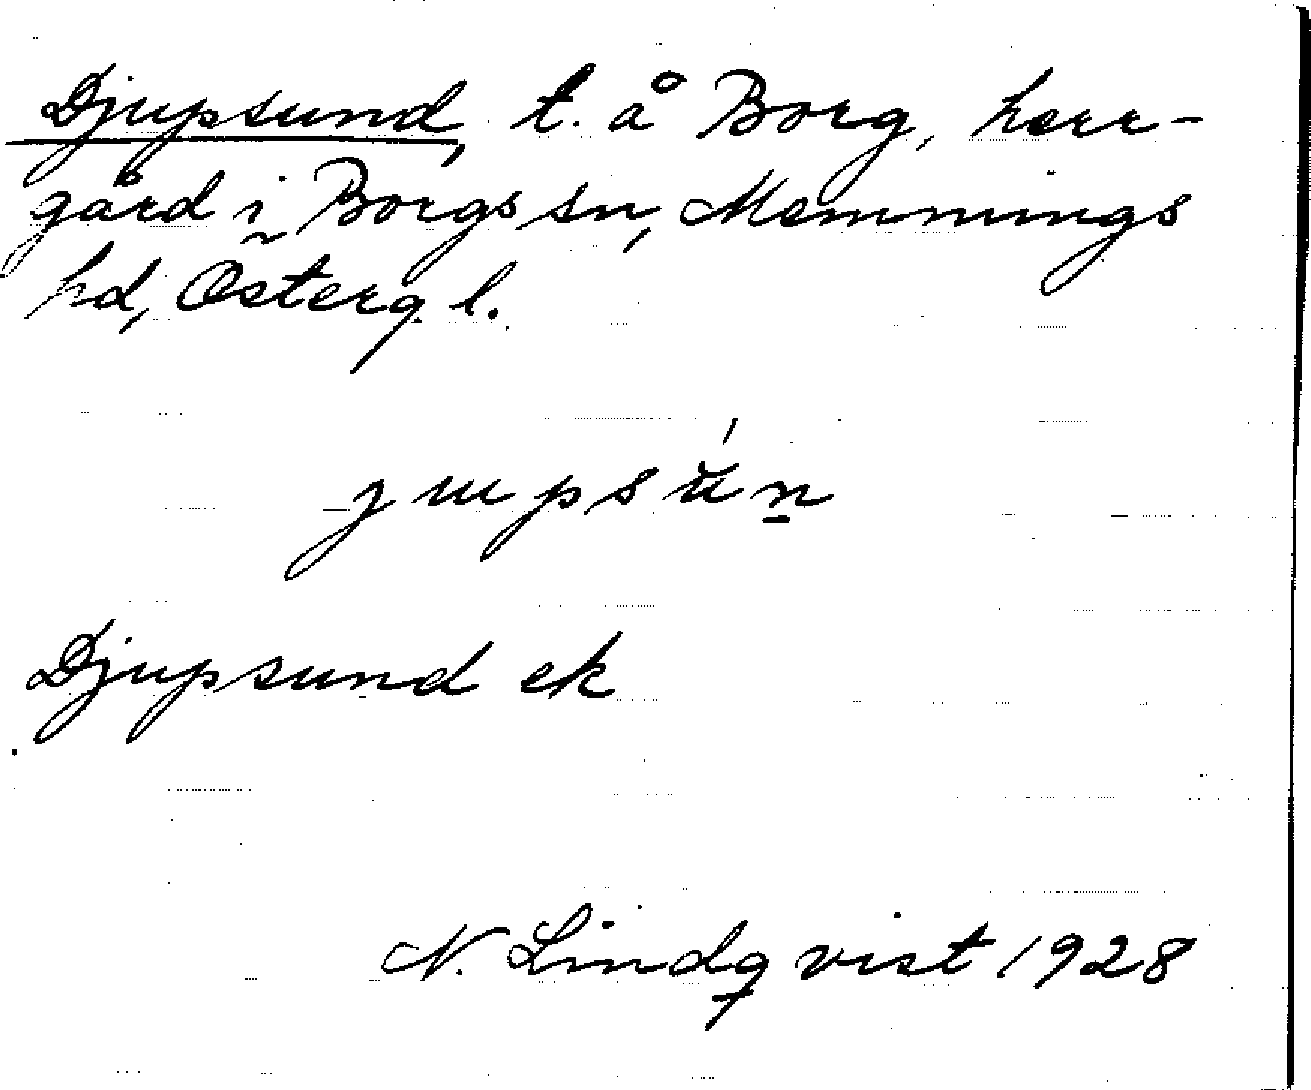 Djupsund, t. å Borg, herr-
gård i Borgs sn, Memmings
hd, Österg l.
jupsun
Djupsund ek
N. Lindqvist 1928